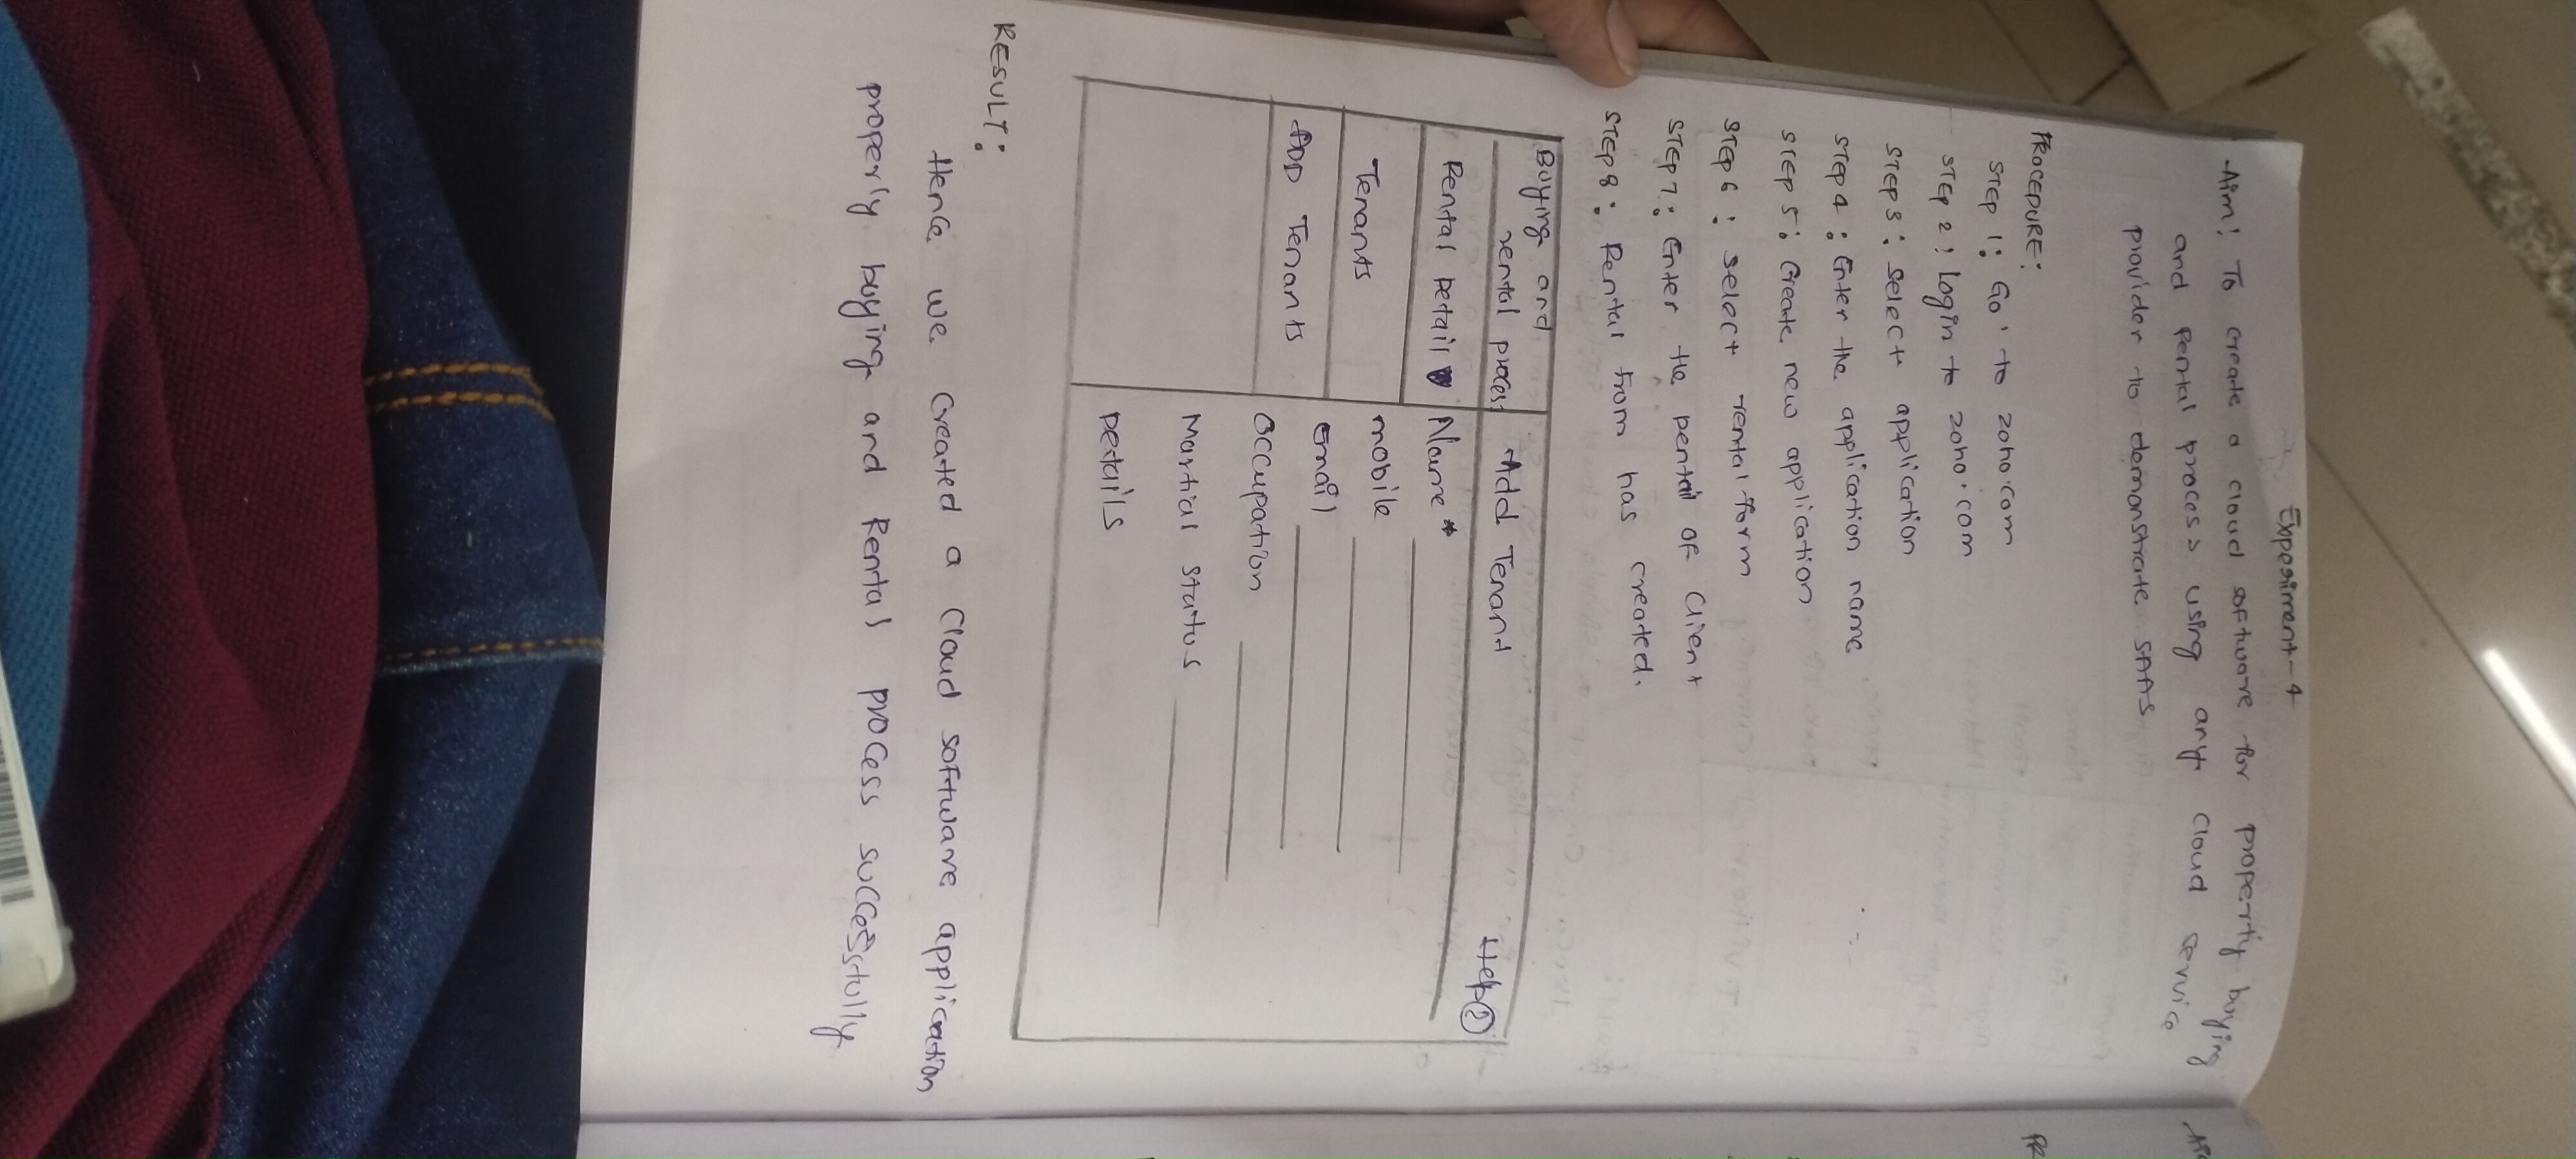 Experiment-4
Aim: To create a cloud software for property buying
and Rental process using any cloud service
provider to demonstrate SAAS
PROCEDURE:
STEP 1: Go to zoho.com
STEP 2: login to zoho.com
STEP 3: select application
STEP 4: Enter the application name
STEP 5: Create new application
STEP 6: select rental form
STEP 7: Enter the pentail of client
STEP 8: Rental from has created.
Buying and
rental process
Add Tenant
Help ?
Rental Detail
Tenants
ADD Tenants
Name *
mobile
Email
Occupation
Martial status
Details
RESULT:
Hence we created a cloud software application
properly buying and Rental process successfully